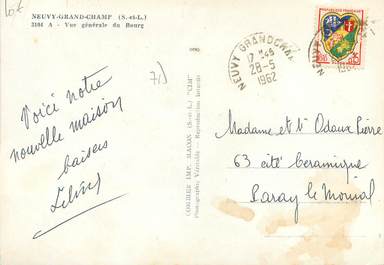 10€
NEUVY-GRAND-CHAMP (S.-et-L.)
3104 A - Vue générale du Bourg
71)
Voici notre
nouvelle maison
baisers
COMBIER IMP. MACON (S.-et-L.) "CIM"
Photographie Véritable - Reproduction Interdite
NEUVY GRANDCHAMP
17 H45
28-5
1962
REPUBLIQUE FRANCAISE
Madame et Mr Odoux Pierre
63 cité Ceramique
Paray le Monial